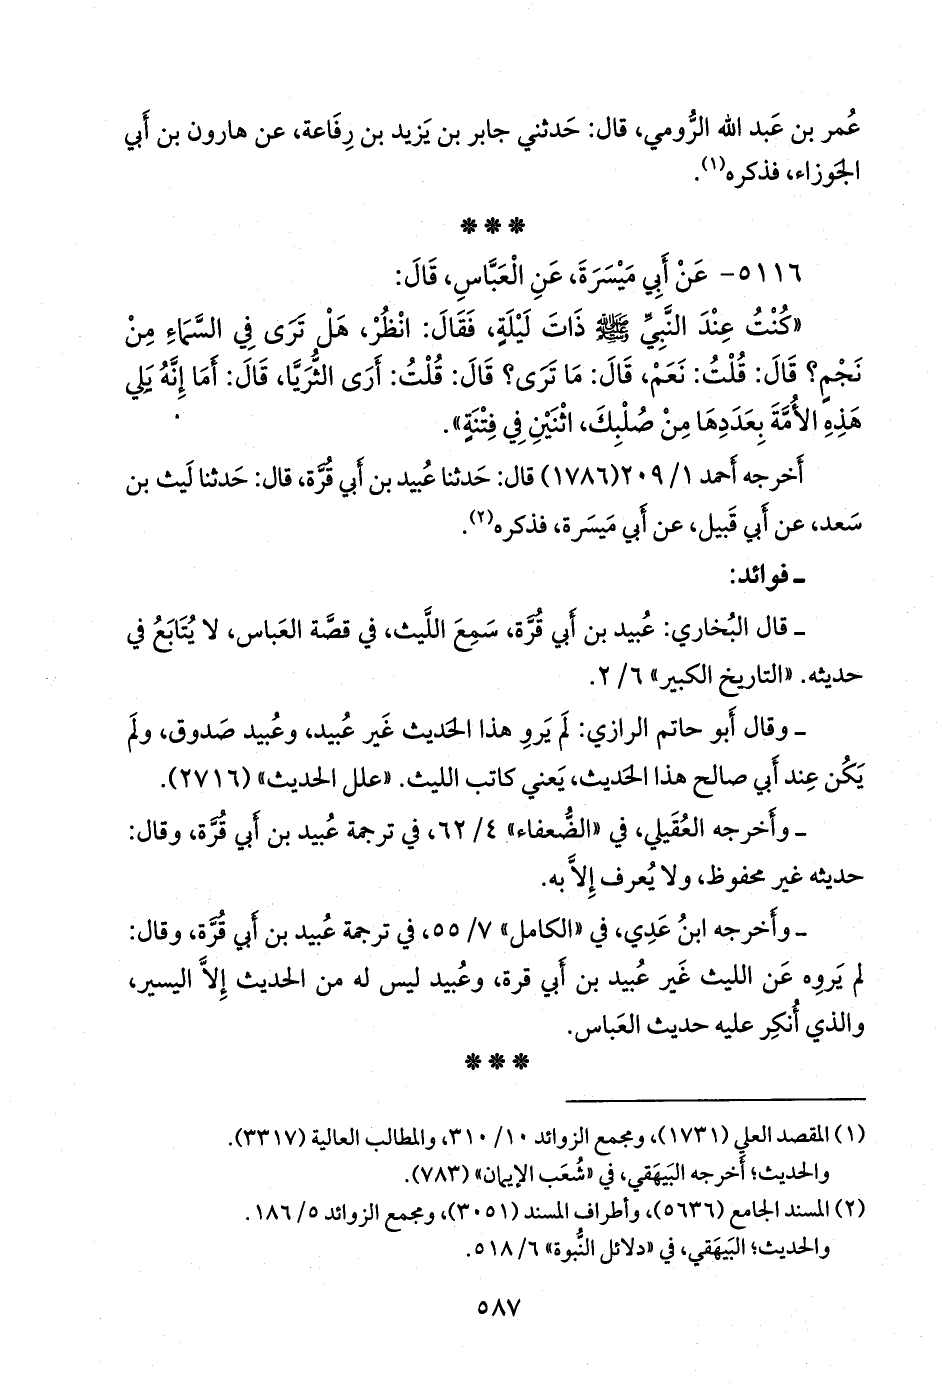 عُمر بن عَبد الله الرُّومي، قال: حَدثني جابر بن يَزيد بن رِفَاعة، عن هارون بن أَبي
الجَوزاء، فذكره(١).
* * *
٥١١٦- عَنْ أَبِي مَيْسَرَةَ، عَنِ الْعَبَّاسِ، قَالَ:
«كُنْتُ عِنْدَ النَّبِيِّ ﷺ ذَاتَ لَيْلَةٍ، فَقَالَ: انْظُرْ، هَلْ تَرَى فِي السَّمَاءِ مِنْ
نَجْمٍ؟ قَالَ: قُلْتُ: نَعَمْ، قَالَ: مَا تَرَى؟ قَالَ: قُلْتُ: أَرَى الثُّرَيَّا، قَالَ: أَمَا إِنَّهُ يَلِي
هَذِهِ الأُمَّةَ بِعَدَدِهَا مِنْ صُلْبِكَ، اثْنَيْنِ فِي فِتْنَةٍ».
أَخرجه أَحمد ١/ ٢٠٩(١٧٨٦) قال: حَدثنا عُبيد بن أَبي قُرَّة، قال: حَدثنا لَيث بن
سَعد، عن أَبي قَبيل، عن أَبي مَيسَرة، فذكره(٢).
ـ فوائد:
ـ قال البُخاري: عُبيد بن أَبي قُرَّة، سَمِعَ اللَّيث، في قصَّة العَباس، لا يُتَابَعُ في
حديثه. «التاريخ الكبير» ٦/ ٢.
ـ وقال أَبو حاتم الرازي: لَم يَروِ هذا الحَديث غَير عُبيد، وعُبيد صَدوق، ولَم
يَكُن عِند أَبي صالح هذا الحَديث، يَعني كاتب الليث. «علل الحديث» (٢٧١٦).
ـ وأَخرجه العُقَيلي، في «الضُّعفاء» ٤/ ٦٢، في ترجمة عُبيد بن أَبي قُرَّة، وقال:
حديثه غير محفوظ، ولا يُعرف إِلاَّ به.
ـ وأَخرجه ابنُ عَدِي، في «الكامل» ٧/ ٥٥، في ترجمة عُبيد بن أَبي قُرَّة، وقال:
لم يَروِه عَن الليث غَير عُبيد بن أَبي قرة، وعُبيد ليس له من الحديث إِلاَّ اليسير،
والذي أُنكِر عليه حديث العَباس.
* * *
(١) المقصد العلي (١٧٣١)، ومجمع الزوائد ١٠/ ٣١٠، والمطالب العالية (٣٣١٧).
والحديث؛ أَخرجه البَيهَقي، في «شُعَب الإيمان» (٧٨٣).
(٢) المسند الجامع (٥٦٣٦)، وأطراف المسند (٣٠٥١)، ومجمع الزوائد ٥/ ١٨٦.
والحديث؛ البَيهَقي، في «دلائل النُّبوة» ٦/ ٥١٨.
٥٨٧